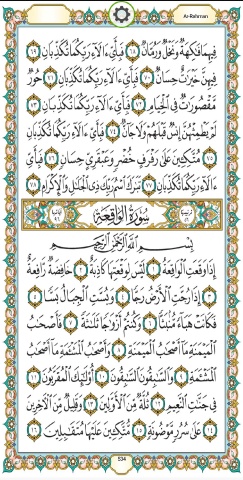 Ar-Rahman
فِيهِمَا فَٰكِهَةٌ وَنَخْلٌ وَرُمَّانٌ ٦٨ فَبِأَيِّ ءَالَآءِ رَبِّكُمَا تُكَذِّبَانِ ٦٩
فِيهِنَّ خَيْرَٰتٌ حِسَانٌ ٧٠ فَبِأَيِّ ءَالَآءِ رَبِّكُمَا تُكَذِّبَانِ ٧١ حُورٌ
مَّقْصُورَٰتٌ فِي ٱلْخِيَامِ ٧٢ فَبِأَيِّ ءَالَآءِ رَبِّكُمَا تُكَذِّبَانِ ٧٣
لَمْ يَطْمِثْهُنَّ إِنسٌ قَبْلَهُمْ وَلَا جَآنٌّ ٧٤ فَبِأَيِّ ءَالَآءِ رَبِّكُمَا تُكَذِّبَانِ
٧٥ مُتَّكِـِٔينَ عَلَىٰ رَفْرَفٍ خُضْرٍ وَعَبْقَرِيٍّ حِسَانٍ ٧٦ فَبِأَيِّ
ءَالَآءِ رَبِّكُمَا تُكَذِّبَانِ ٧٧ تَبَٰرَكَ ٱسْمُ رَبِّكَ ذِي ٱلْجَلَٰلِ وَٱلْإِكْرَامِ ٧٨
سُورَةُ ٱلْوَاقِعَةِ
بِسْمِ ٱللَّهِ ٱلرَّحْمَٰنِ ٱلرَّحِيمِ
إِذَا وَقَعَتِ ٱلْوَاقِعَةُ ١ لَيْسَ لِوَقْعَتِهَا كَاذِبَةٌ ٢ خَافِضَةٌ رَّافِعَةٌ
٣ إِذَا رُجَّتِ ٱلْأَرْضُ رَجًّا ٤ وَبُسَّتِ ٱلْجِبَالُ بَسًّا ٥
فَكَانَتْ هَبَآءً مُّنۢبَثًّا ٦ وَكُنتُمْ أَزْوَٰجًا ثَلَٰثَةً ٧ فَأَصْحَٰبُ
ٱلْمَيْمَنَةِ مَآ أَصْحَٰبُ ٱلْمَيْمَنَةِ ٨ وَأَصْحَٰبُ ٱلْمَشْـَٔمَةِ مَآ أَصْحَٰبُ
ٱلْمَشْـَٔمَةِ ٩ وَٱلسَّٰبِقُونَ ٱلسَّٰبِقُونَ ١٠ أُو۟لَٰٓئِكَ ٱلْمُقَرَّبُونَ ١١
فِي جَنَّٰتِ ٱلنَّعِيمِ ١٢ ثُلَّةٌ مِّنَ ٱلْأَوَّلِينَ ١٣ وَقَلِيلٌ مِّنَ ٱلْءَاخِرِينَ
١٤ عَلَىٰ سُرُرٍ مَّوْضُونَةٍ ١٥ مُّتَّكِـِٔينَ عَلَيْهَا مُتَقَٰبِلِينَ ١٦
534